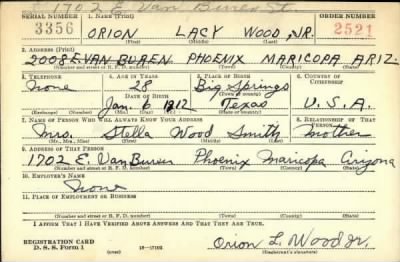 1702 E. Van Buren St.
SERIAL NUMBER 1. NAME (Print) ORDER NUMBER
3356 ORION LACY WOOD, JR. 2521
(First) (Middle) (Last)
2. ADDRESS (Print)
2008 E. VAN BUREN PHOENIX MARICOPA ARIZ.
(Number and street or R. F. D. number) (Town) (County) (State)
3. TELEPHONE 4. AGE IN YEARS 5. PLACE OF BIRTH 6. COUNTRY OF CITIZENSHIP
None 28 Big Springs
DATE OF BIRTH (Town or county)
Jan. 6 1912 Texas U. S. A.
(Exchange) (No.) (Mo.) (Day) (Yr.) (State or country)
7. NAME OF PERSON WHO WILL ALWAYS KNOW YOUR ADDRESS 8. RELATIONSHIP OF THAT PERSON
Mrs. Stella Wood Smith Mother
(Mr., Mrs., Miss) (First) (Middle) (Last)
9. ADDRESS OF THAT PERSON
1702 E. Van Buren Phoenix Maricopa Arizona
(Number and street or R. F. D. number) (Town) (County) (State)
10. EMPLOYER'S NAME
None
11. PLACE OF EMPLOYMENT OR BUSINESS
(Number and street or R. F. D. number) (Town) (County) (State)
I AFFIRM THAT I HAVE VERIFIED ABOVE ANSWERS AND THAT THEY ARE TRUE.
REGISTRATION CARD
D. S. S. Form 1 (over) 16-17105 Orion L. Wood Jr.
(Registrant's signature)